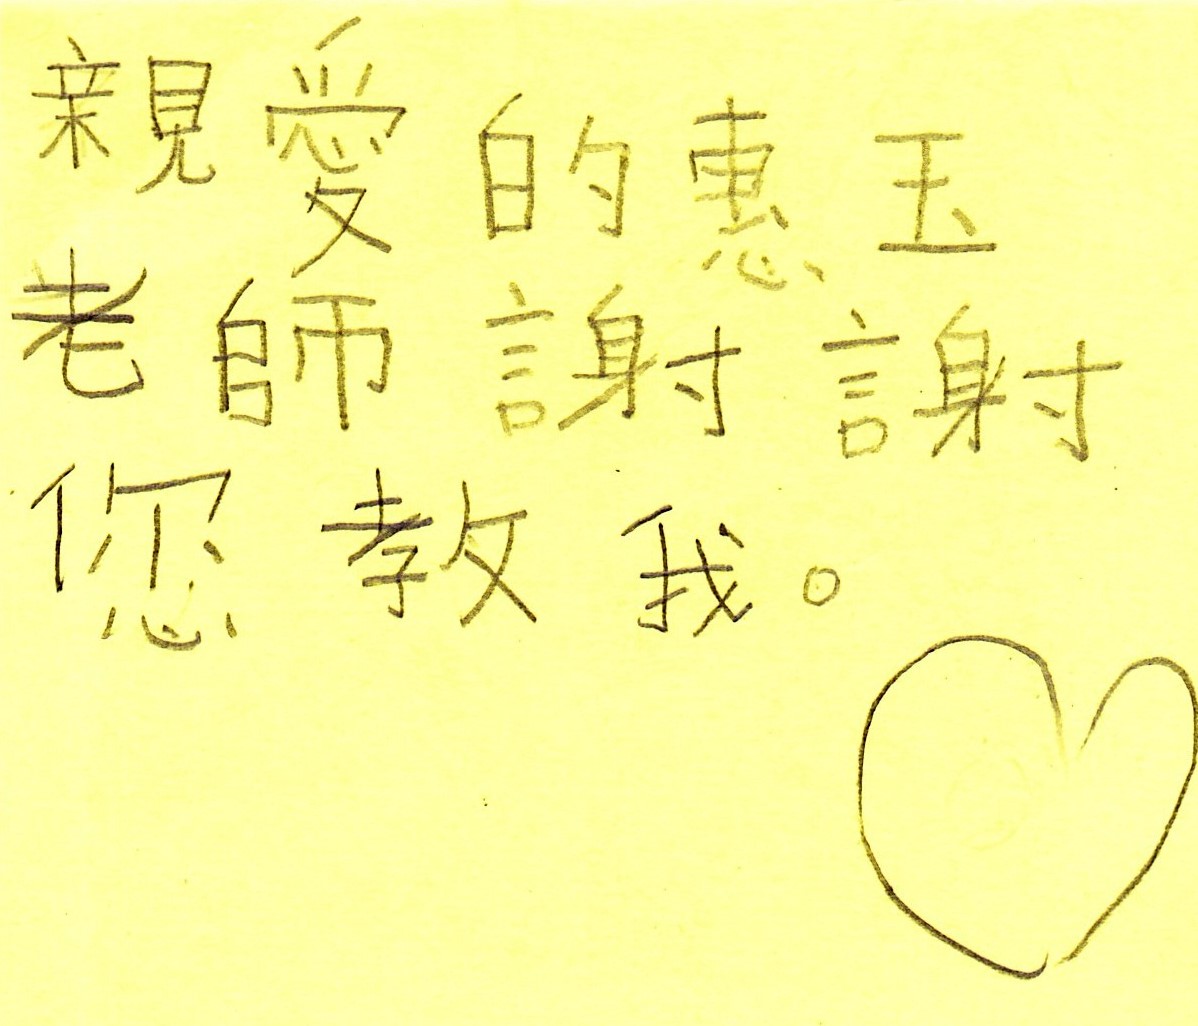 親愛的惠玉
老師謝謝
您教我。